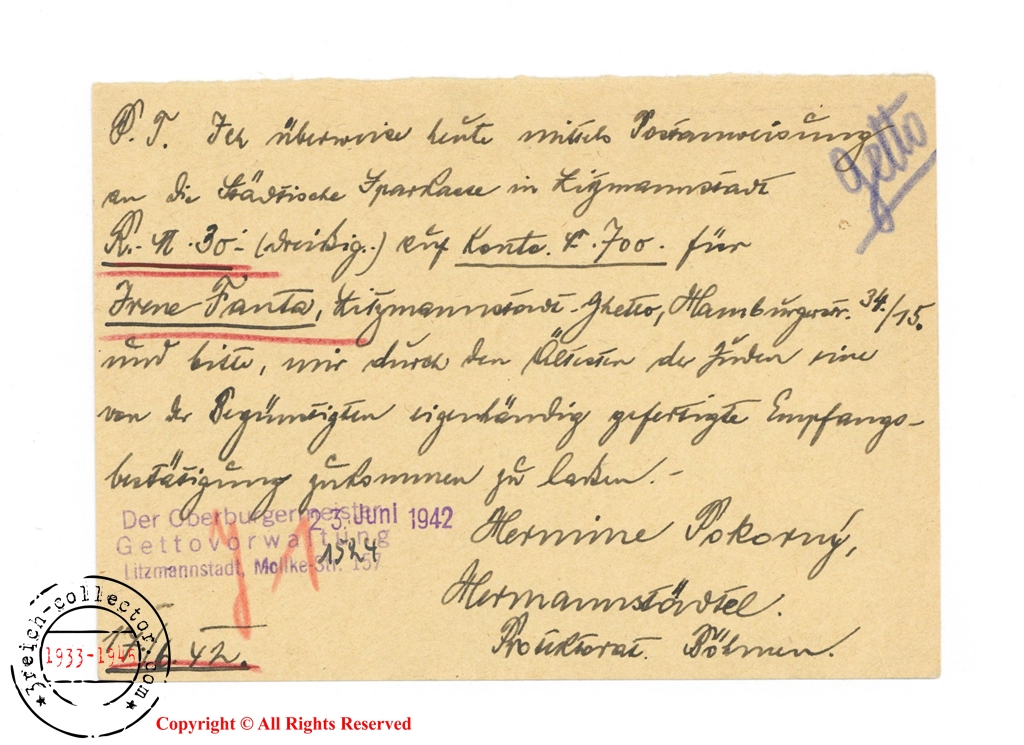 P. T. Ich überweise heute mittels Postanweisung
Getto
an die Städtische Sparkasse in Litzmannstadt
R.-M. 30.- (dreißig.) auf Konto. 700. für
Irene Fanta, Litzmannstadt-Ghetto, Hamburgerstr. 34/15.
und bitte, mir durch den Ältesten der Juden eine
von der Begünstigten eigenhändig gefertigte Empfangs-
bestätigung zukommen zu laßen.-
Der Oberbürgermeister
Gettoverwaltung
Litzmannstadt, Moltke-Str. 157
23. Juni 1942
1524
Hermine Pokorný,
Hermannstädtel.
Protektorat. Böhmen.
17.6.42.
3reich-collector.com
1933-1945
Copyright © All Rights Reserved